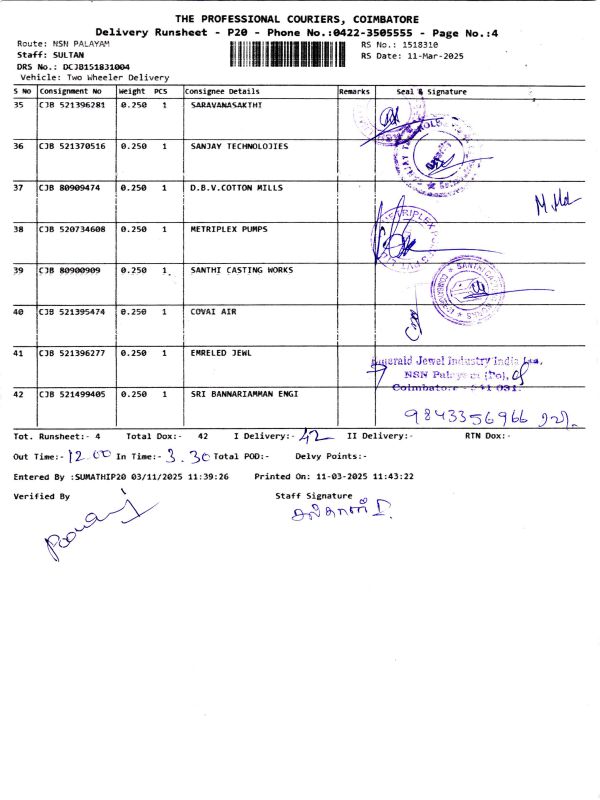 THE PROFESSIONAL COURIERS, COIMBATORE
Delivery Runsheet - P20 - Phone No.:0422-3505555 - Page No.:4
Route: NSN PALAYAM RS No.: 1518310
Staff: SULTAN RS Date: 11-Mar-2025
DRS No.: DCJB151831004
Vehicle: Two Wheeler Delivery
S NO Consignment No Weight PCS Consignee Details Remarks Seal & Signature
35 CJB 521396281 0.250 1 SARAVANASAKTHI
36 CJB 521370516 0.250 1 SANJAY TECHNOLOJIES
37 CJB 80909474 0.250 1 D.B.V.COTTON MILLS
38 CJB 520734608 0.250 1 METRIPLEX PUMPS
39 CJB 80900909 0.250 1 SANTHI CASTING WORKS
40 CJB 521395474 0.250 1 COVAI AIR
41 CJB 521396277 0.250 1 EMRELED JEWL
Emerald Jewel Industry India Ltd,
NSN Palayam (Po),
Coimbatore - 641 031.
42 CJB 521499405 0.250 1 SRI BANNARIAMMAN ENGI
9843356966
Tot. Runsheet:- 4 Total Dox:- 42 I Delivery:- 42 II Delivery:- RTN Dox:-
Out Time:- 12.00 In Time:- 3.30 Total POD:- Delvy Points:-
Entered By :SUMATHIP20 03/11/2025 11:39:26 Printed On: 11-03-2025 11:43:22
Verified By Staff Signature